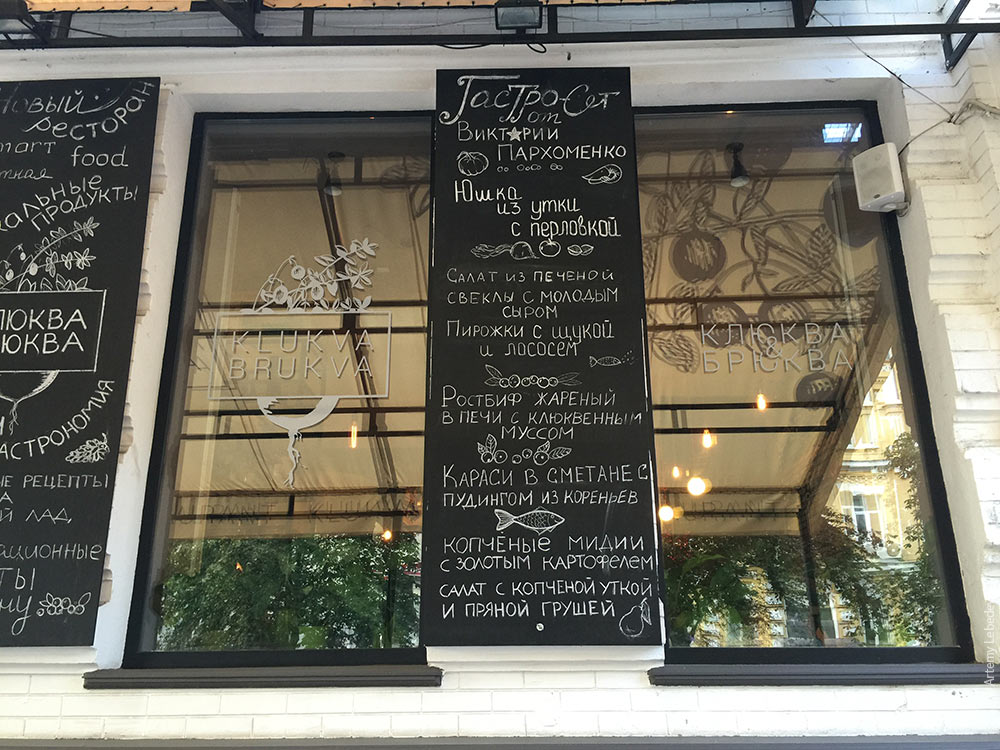 Новый
ресторан
mart food
тная
альные
продукты
люква
рюква
астрономия
ые рецепты
й лад,
ационные
ты
ну
KLUKVA
BRUKVA
Гастро-Сет
от
Виктории
Пархоменко
Юшка
из утки
с перловкой
Салат из печеной
свеклы с молодым
сыром
Пирожки с щукой
и лососем
Ростбиф жареный
в печи с клюквенным
муссом
Караси в сметане с
пудингом из кореньев
копчёные мидии
с золотым картофелем
салат с копченой уткой
и пряной грушей
КЛЮКВА
&
БРЮКВА
Artemy Lebede